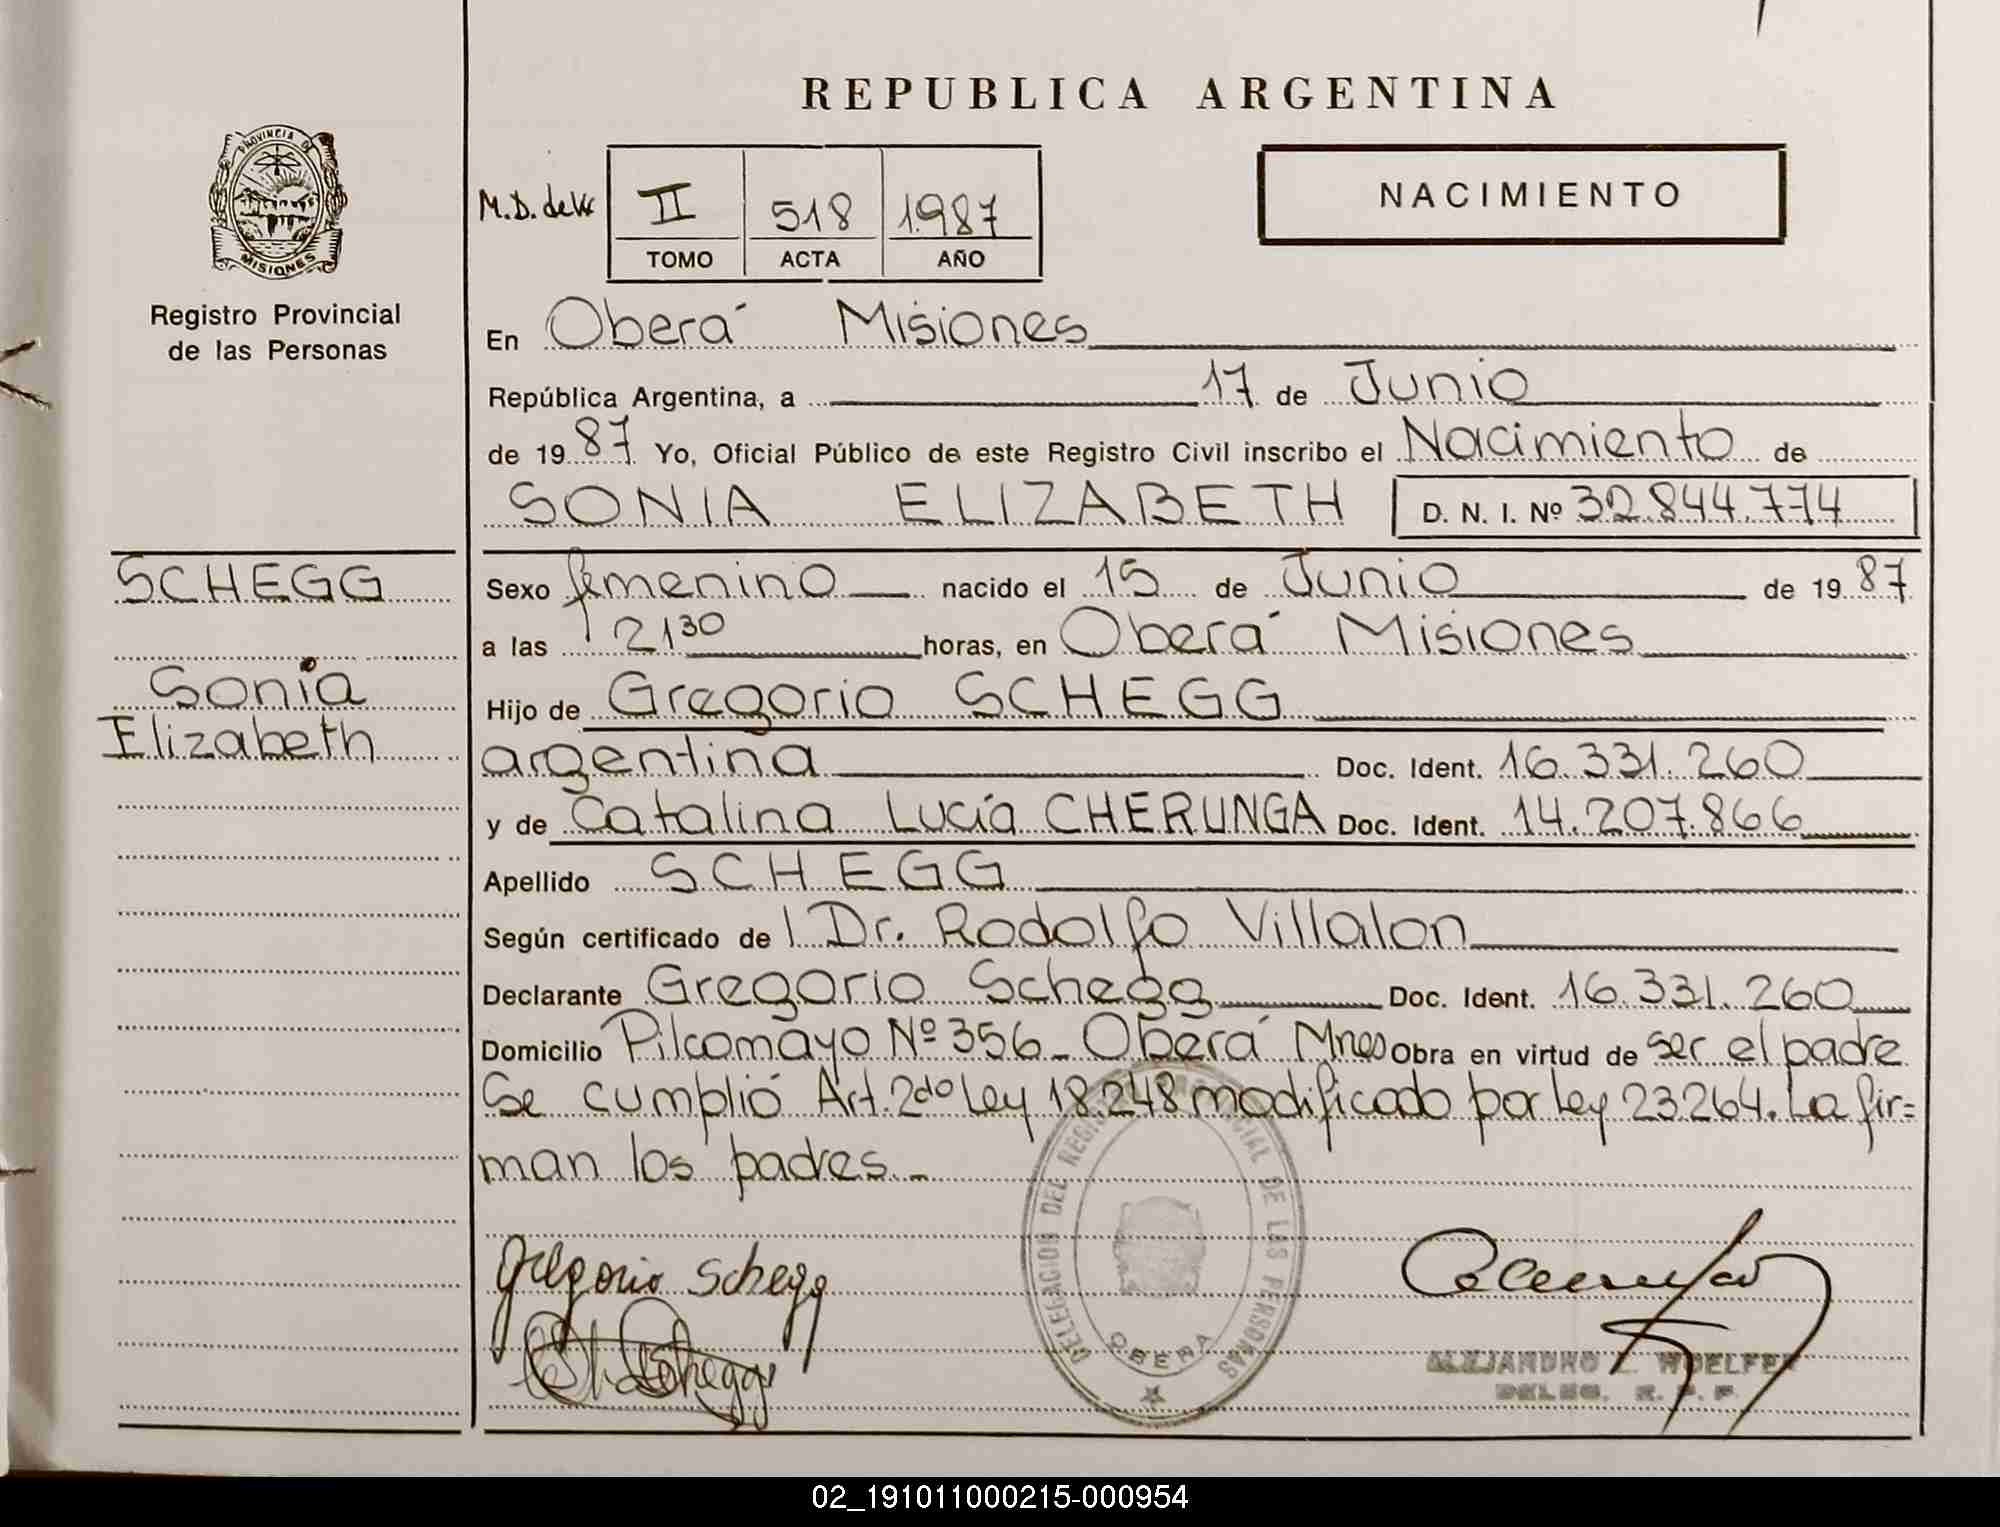 REPUBLICA ARGENTINA
PROVINCIA DE
MISIONES
Registro Provincial
de las Personas
NACIMIENTO
M.D. de
II 518 1987
TOMO ACTA AÑO
En Oberá Misiones
República Argentina, a 17 de Junio
de 1987 Yo, Oficial Público de este Registro Civil inscribo el Nacimiento de
SONIA ELIZABETH D. N. I. Nº 32.844.774
SCHEGG
Sonia
Elizabeth
Sexo femenino nacido el 15 de Junio de 1987
a las 21 30 horas, en Oberá Misiones
Hijo de Gregorio SCHEGG
argentina Doc. Ident. 16.331.260
y de Catalina Lucía CHERUNGA Doc. Ident. 14.207.866
Apellido SCHEGG
Según certificado de l Dr. Rodolfo Villalon
Declarante Gregorio Schegg Doc. Ident. 16.331.260
Domicilio Pilcomayo Nº 356_ Oberá Mnes Obra en virtud de ser el padre
Se cumplió Art. 2do Ley 18.248 modificado por Ley 23.264. La fir=
man los padres._
Gregorio Schegg
DELEGACION DEL REGISTRO PROVINCIAL DE LAS PERSONAS
OBERA
ALEJANDRO L. WOELFER
DELEG. R. P. P.
02_191011000215-000954